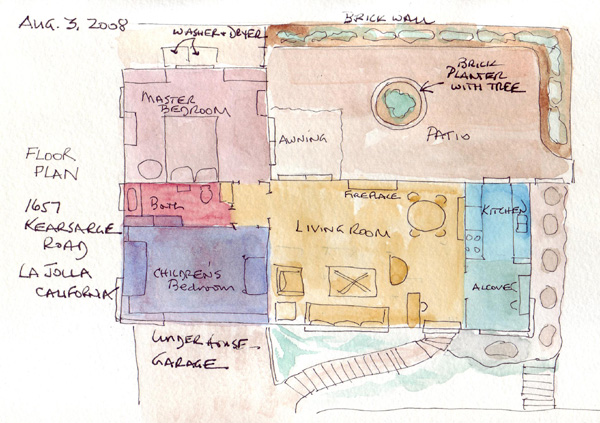 AUG. 3, 2008
BRICK WALL
WASHER & DRYER
BRICK
PLANTER
WITH TREE
MASTER
BEDROOM
AWNING
PATIO
FLOOR
PLAN
1657
KEARSARGE
ROAD
LA JOLLA
CALIFORNIA
Bath
FIREPLACE
LIVING ROOM
KITCHEN
CHILDREN'S
Bedroom
ALCOVE
UNDER HOUSE
GARAGE